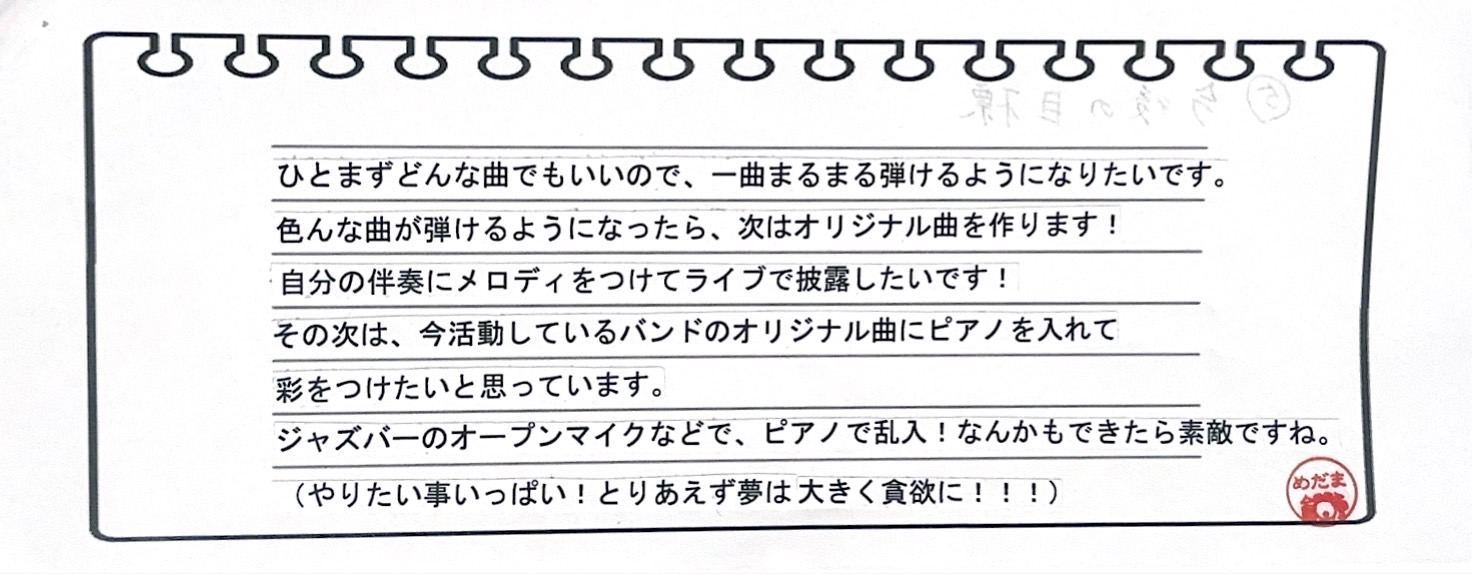 ⑤ 今後の目標
ひとまずどんな曲でもいいので、一曲まるまる弾けるようになりたいです。
色んな曲が弾けるようになったら、次はオリジナル曲を作ります！
自分の伴奏にメロディをつけてライブで披露したいです！
その次は、今活動しているバンドのオリジナル曲にピアノを入れて
彩をつけたいと思っています。
ジャズバーのオープンマイクなどで、ピアノで乱入！なんかもできたら素敵ですね。
（やりたい事いっぱい！とりあえず夢は大きく貪欲に！！！）
めだま